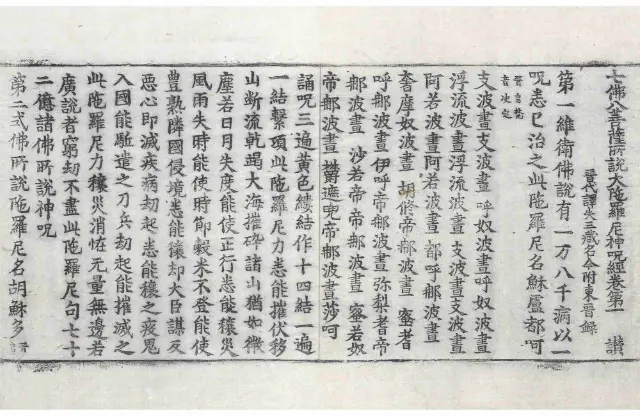 七佛八菩薩所說大陀羅尼神呪經卷第一 讃
晉代譯失三藏名今附東晉錄
第一維衛佛說有一万八千病以一
呪悉已治之此陀羅尼名穌盧都呵
支波晝支波晝 呼奴波晝呼奴波晝
浮流波晝浮流波晝 支波晝
阿若波晝阿若波晝 都呼都波晝
奢摩奴波晝 胡修帝都波晝 蜜耆
呼都波晝伊呼帝都波晝弥梨耆帝
都波晝 沙若帝帝都波晝 蜜若奴
帝都波晝 遮兜帝都波晝沙呵
誦呪三遍黃色縷結作十四結一遍
一結繫項此陀羅尼力悉能摧伏移
山斷流乾竭大海摧碎諸山猶如微
塵若日月失度能使正行悉能穰災
風雨失時能使時節穀米不登能使
豊熟隣國侵境悉能穰却大臣謀反
惡心即滅疾病劫起悉能穰之疫鬼
入國能駈遣之刀兵劫起能摧滅之
此陀羅尼力穰灾消恠无量無邊若
廣說者窮劫不盡此陀羅尼句七十
二億諸佛所說神呪
第二式佛所說陀羅尼名胡穌多 晉